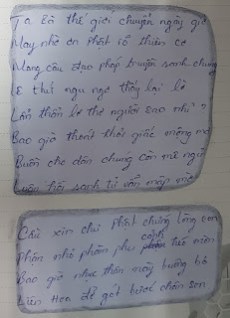 Ta bà thế giới chuyển ngày giờ
May nhờ ơn Phật tổ thừa cơ
Mang câu đạo pháp truyền sanh chúng
E thứ ngu ngơ thấy lại lơ
Lẩn thẩn lơ thơ người sao nhỉ ?
Bao giờ thoát thỏi giấc mộng mơ
Buồn cho dân chúng còn mê ngủ
Luân hồi sanh tử vẫn mập mờ
Cầu xin chư Phật chứng lòng con
Phận nhỏ phàm phu cạnh tuế mòn
Bao giờ như thân này buông bỏ
Liên Hoa để gót bước chân son